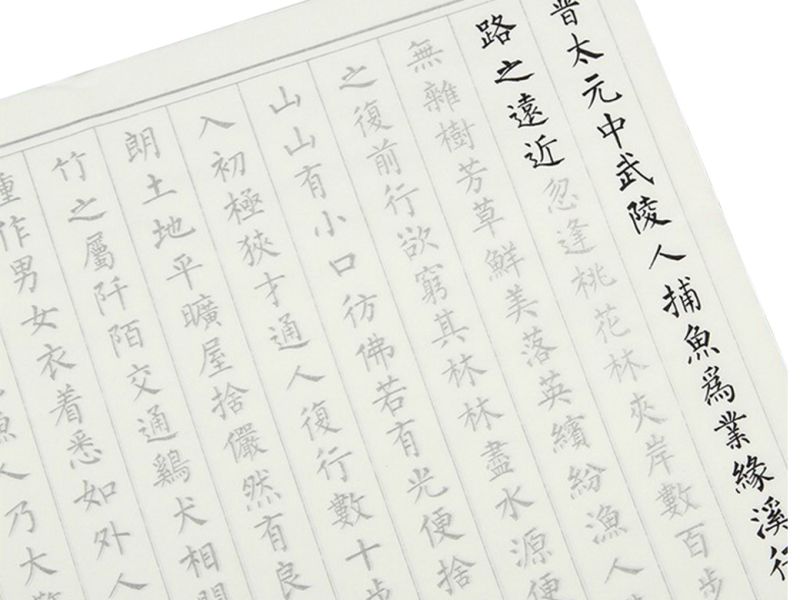 晉太元中武陵人捕魚爲業緣溪行
路之遠近忽逢桃花林夾岸數百步
無雜樹芳草鮮美落英繽紛漁人
之復前行欲窮其林林盡水源便
山山有小口彷佛若有光便捨
入初極狹才通人復行數十步
朗土地平曠屋捨儼然有良
竹之屬阡陌交通鷄犬相聞
種作男女衣着悉如外人
漁人乃大驚